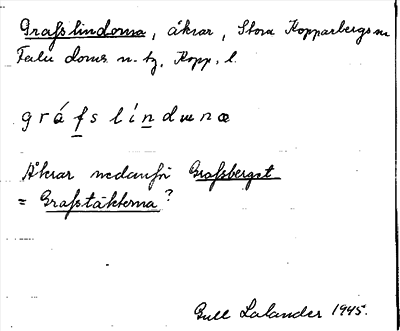 Grafslindorna, åkrar, Stora Kopparbergs sn
Falu doms. n. tg. Kopp. l.
gráfslíndwnæ
Åkrar nedanför Grafsberget
= Grafstäkterna?
Gull Lalander 1945.